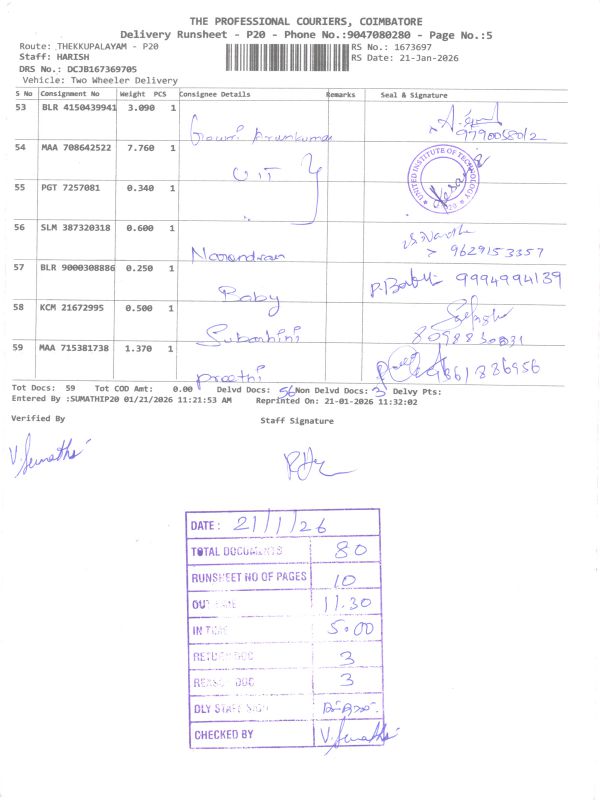 THE PROFESSIONAL COURIERS, COIMBATORE
Delivery Runsheet - P20 - Phone No.:9047080280 - Page No.:5
Route: THEKKUPALAYAM - P20 RS No.: 1673697
Staff: HARISH RS Date: 21-Jan-2026
DRS No.: DCJB167369705
Vehicle: Two Wheeler Delivery
S No Consignment No Weight PCS Consignee Details Remarks Seal & Signature
53 BLR 4150439941 3.090 1 Gowri Prunkumar 9790058012
54 MAA 708642522 7.760 1 UIT
UNITED INSTITUTE OF TECHNOLOGY
55 PGT 7257081 0.340 1
56 SLM 387320318 0.600 1 Narendran 9629153357
57 BLR 9000308886 0.250 1 Baby P.Baby 9994994139
58 KCM 21672995 0.500 1 Subashini 8098830831
59 MAA 715381738 1.370 1 Preethi 9861886956
Tot Docs: 59 Tot COD Amt: 0.00 Delvd Docs: 56 Non Delvd Docs: 3 Delvy Pts:
Entered By :SUMATHIP20 01/21/2026 11:21:53 AM Reprinted On: 21-01-2026 11:32:02
Verified By Staff Signature
V. Sumathi
DATE : 21/1/26
TOTAL DOCUMENTS 80
RUNSHEET NO OF PAGES 10
OUT TIME 11.30
IN TIME 5.00
RETURN DOC 3
REASON DOC 3
DLY STAFF SIGN
CHECKED BY V. Sumathi